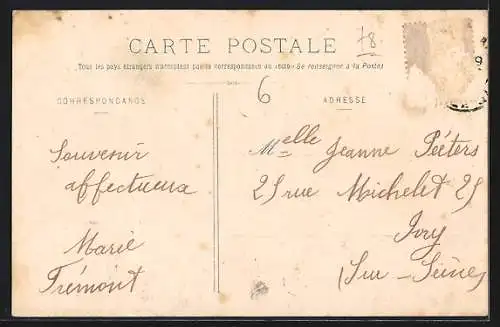 CARTE POSTALE
78
Tous les pays étrangers n'acceptent pas la correspondance au recto (Se renseigner à la Poste)
6
CORRESPONDANCE
ADRESSE
Souvenir
affectueux
Marie
Trémont
Melle Jeanne Peéters
25 rue Michelet 25
Ivry
(Sur-Seine)